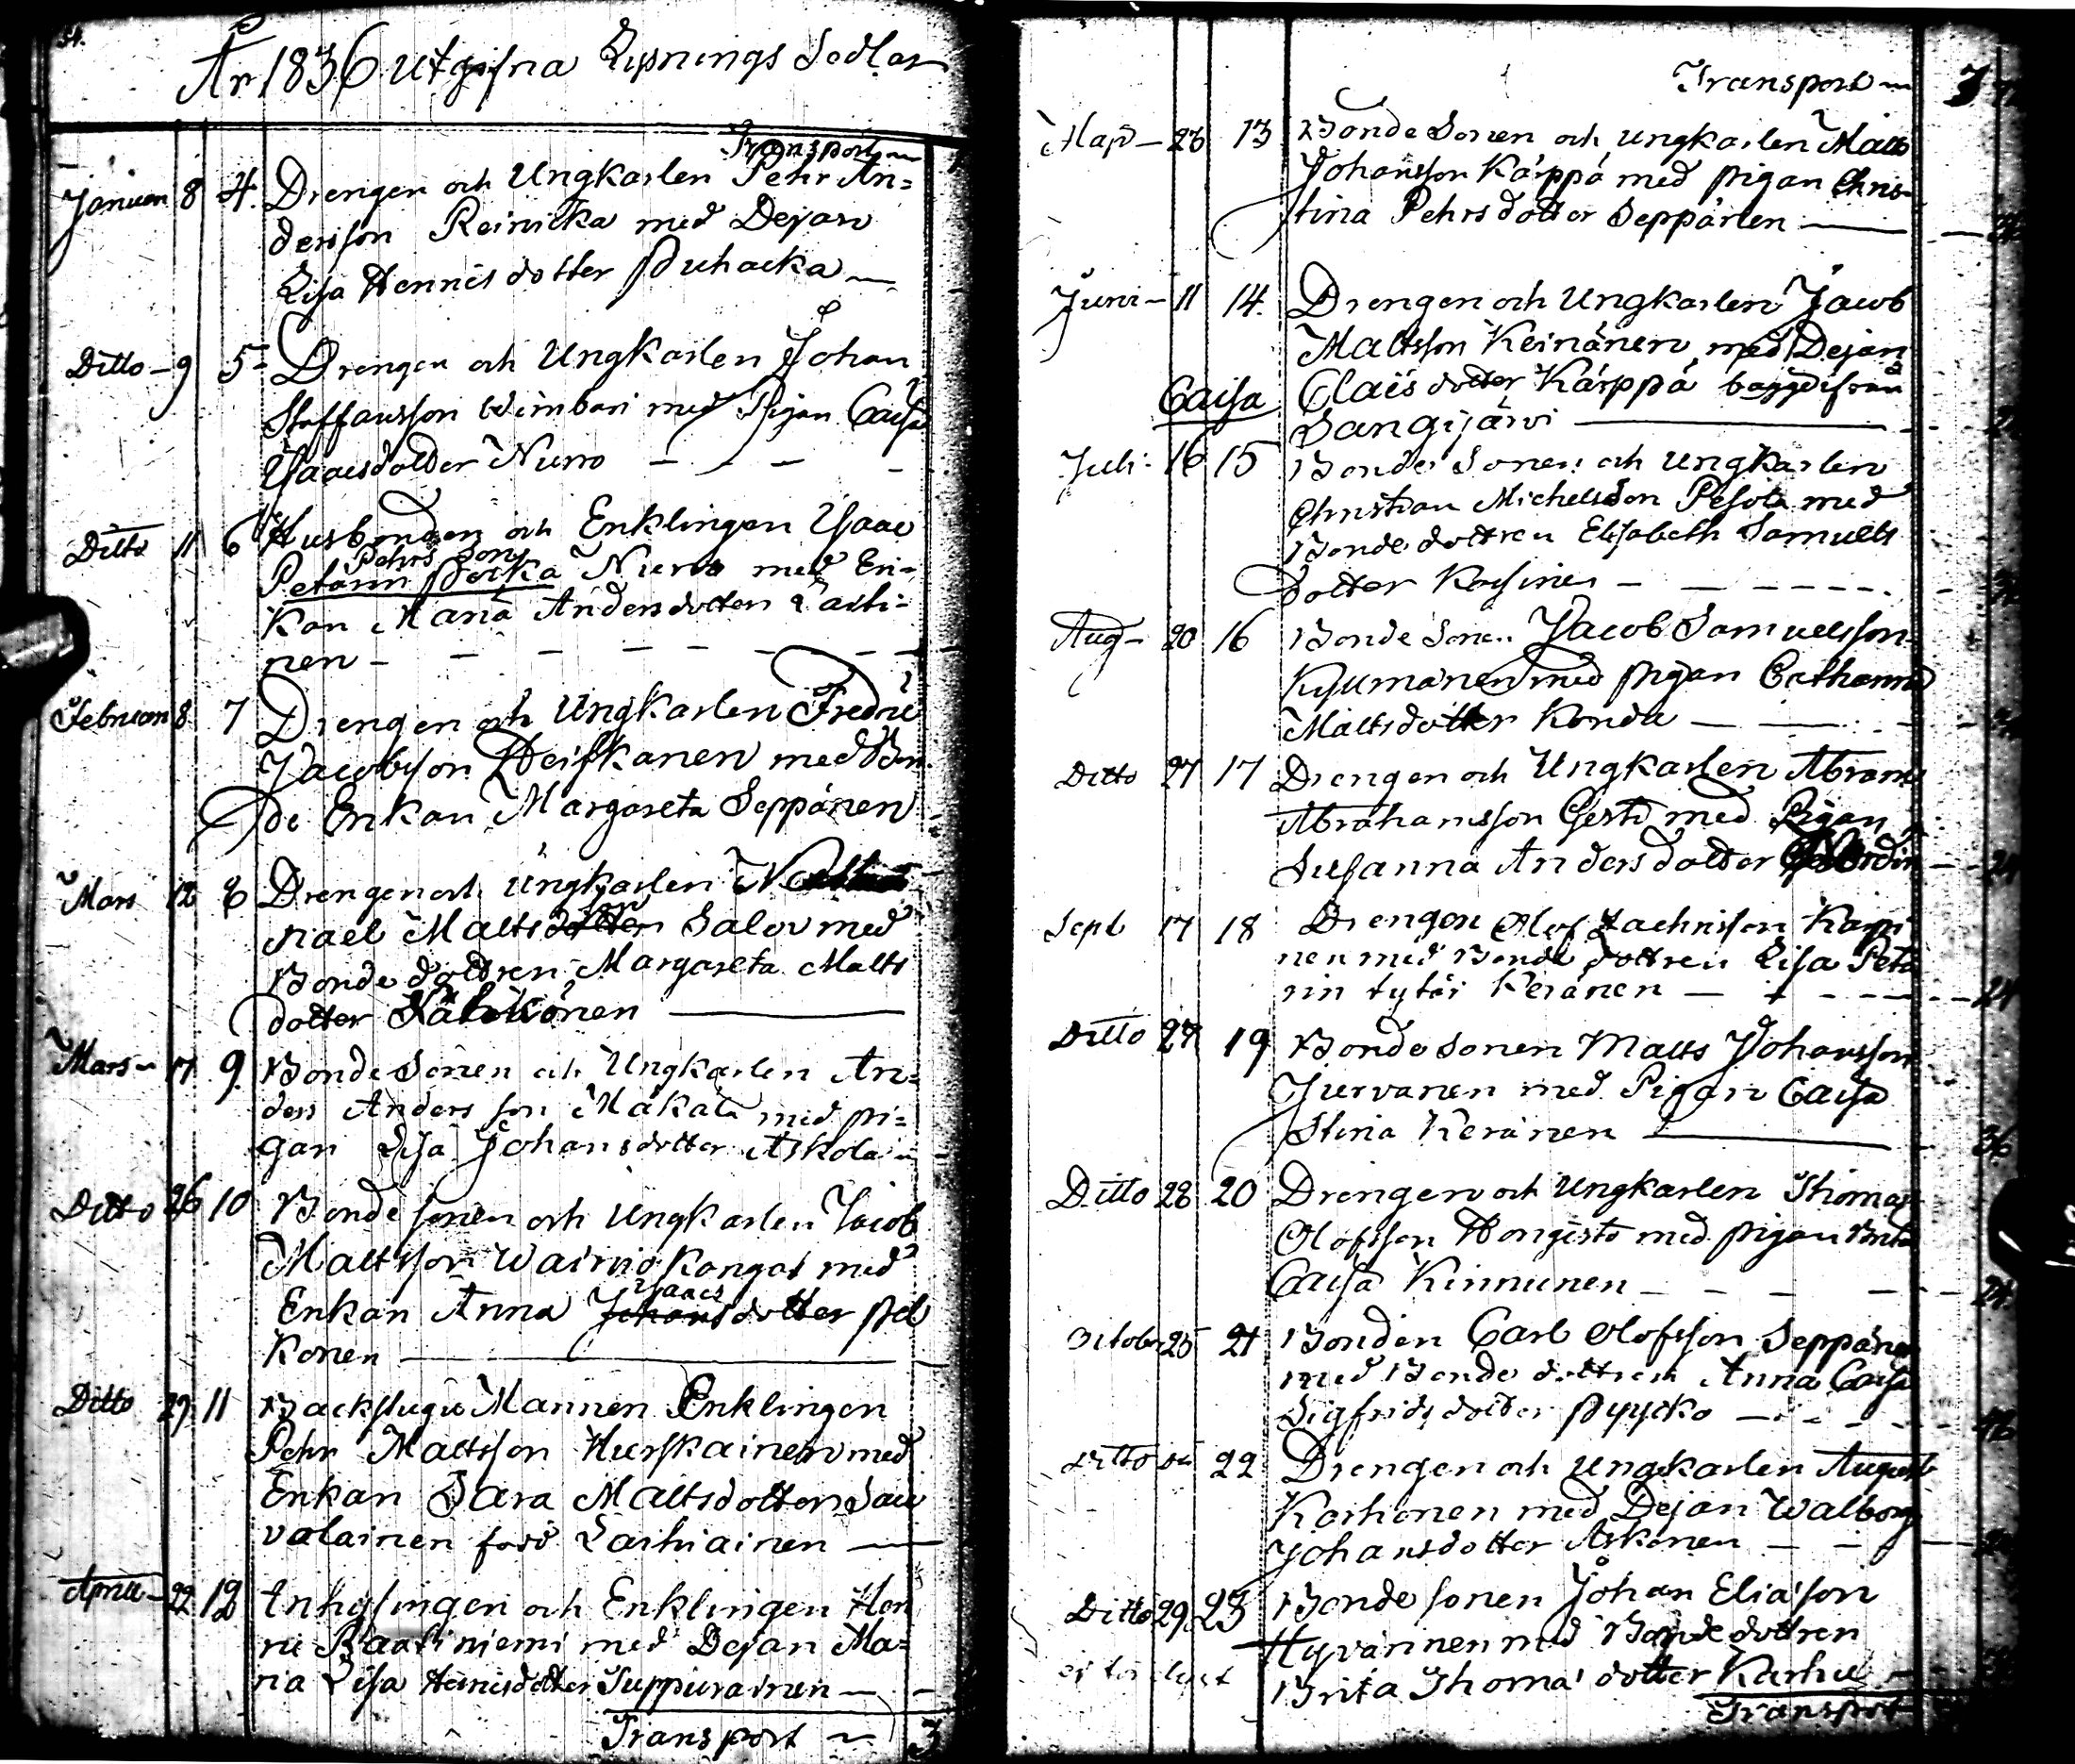 År 1836 Utgifna Lysnings Sedlar
Transport
Januari 8 4. Drengen och Ungkarlen Pehr An=
dersson Reinicka med Dejan
Lisa Hennes dotter Puhacka
Ditto - 9 5 - Drengen och Ungkarlen Johan
Staffansson Wimbari med Pigan Caisa
Isaacsdotter Nurro - - -
Ditto 11 6 Husbonden och Enklingen Isaac
Pehrs Son
Petärin poika Nurro med En=
kan Maria Andersdotter Lasti=
nen - - - - - -
Februari 8 7 Drengen och Ungkarlen Fredric
Jacobsson Heiskanen med Bon
de Enkan Margareta Seppänen
Mars 12 8 Drengen och Ungkarlen
nael Mattsson Salov med
Bonde dottren Margareta Matts
dotter
Mars 17 9 Bonde Sonen och Ungkarlen An=
ders Andersson Mäkälä med pi=
gan Lisa Johansdotter Askola
Ditto 26 10 Bonde sonen och Ungkarlen Jacob
Mattsson Wainio Kangas med
Isaacs
Enkan Anna Johansdotter Pel
konen
Ditto 29 11 Backstugu Mannen Enklingen
Pehr Mattsson Hurskainen med
Enkan Sara Mattsdotter Sau
valainen född Karhiainen
April - 22 12 Inhysingen och Enklingen Hen
ric Raatiniemi med Dejan Ma=
ria Lisa Henricsdotter Juppurainen
Transport 3
Transport 3
Maji - 23 13 Bonde Sonen och Ungkarlen Matts
Johansson Kärppä med pigan Chris
tina Pehrsdotter Seppänen
Juni - 11 14. Drengen och Ungkarlen Jacob
Mattsson Keinänen med Dejan
Caisa Claës dotter Kärppä bägge ifrån
Sangijärvi
Juli - 16 15 Bonde Sonen och Ungkarlen
Christian Michelsson Pesola med
Bonde dottren Elisabeth Samuels
dotter Kosinen
Aug - 20 16 Bonde Sonen Jacob Samuelsson
Kyumänen med pigan Catharina
Mattsdotter Konda
Ditto 27 17 Drengen och Ungkarlen Abram
Abrahamsson Gerts med Pigan
Susanna Andersdotter
Sept 17 18 Drengen Olof Zachrisson Karpi
nen med Bonde dottren Lisa Petä
rin tytär Keränen
Ditto 27 19 Bonde sonen Matts Johansson
Jurvanen med Pigan Caisa
Stina Keränen 36
Ditto 28 20 Drengen och Ungkarlen Thomas
Olofsson Hongisto med pigan Brita
Caisa Kinnunen 24
October 25 21 Bonden Carl Olofsson Seppänen
med Bonde dottren Anna Caisa
Sigfridsdotter Pyycko
Ditto 22 Drengen och Ungkarlen August
Korhonen med Dejan Walborg
Johansdotter Askonen
Ditto 29 23 Bonde sonen Johan Eliasson
Hyvärinen med Bonde dottren
Brita Thoma' dotter Karhu
Transport